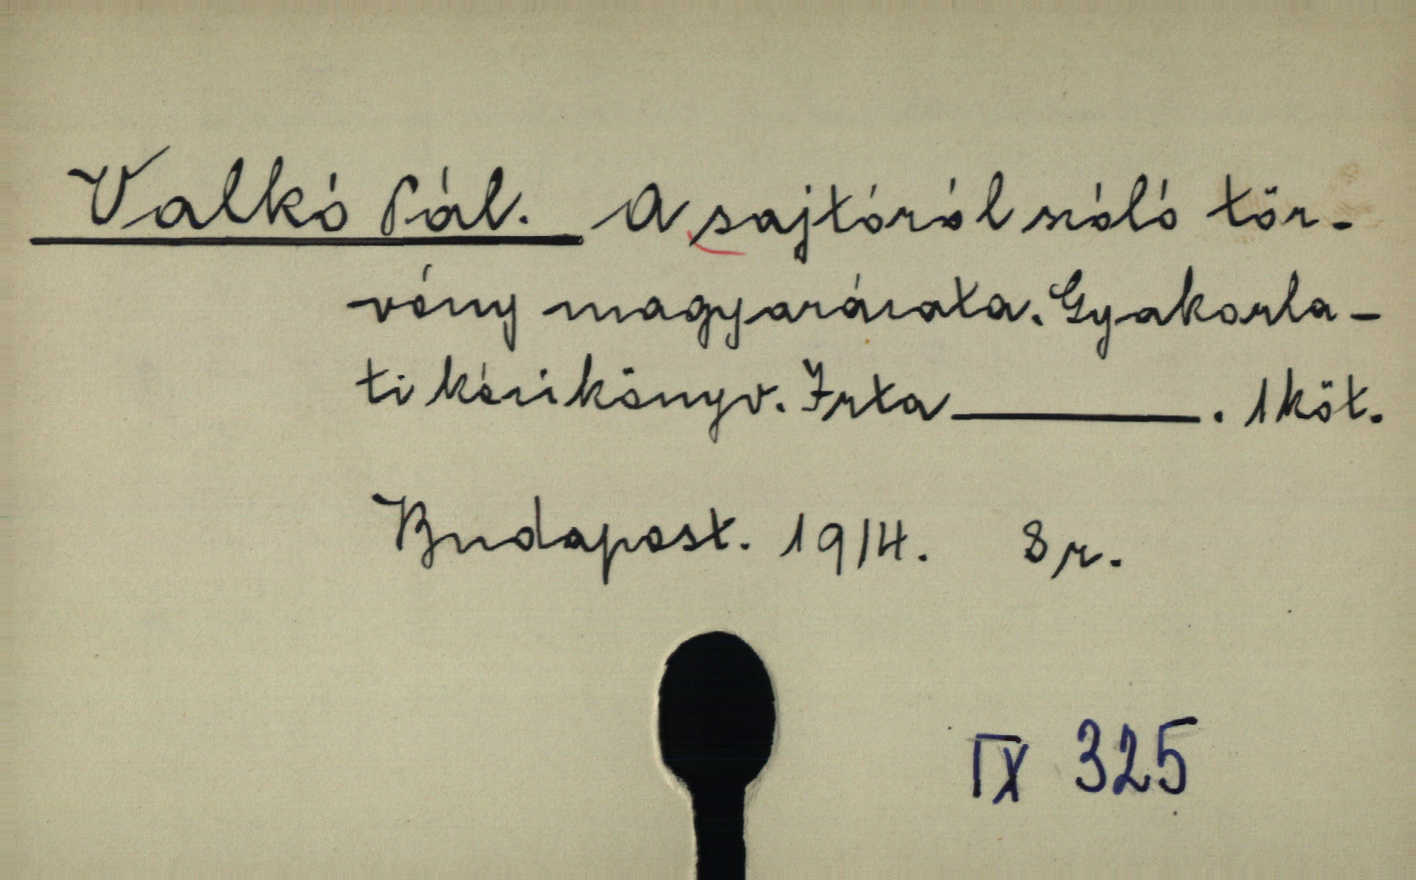 Valkó Pál. A sajtóról szóló tör-
vény magyarázata. Gyakorla-
ti kézikönyv. Irta ———. 1 köt.
Budapest. 1914. 8 r.
IX 325